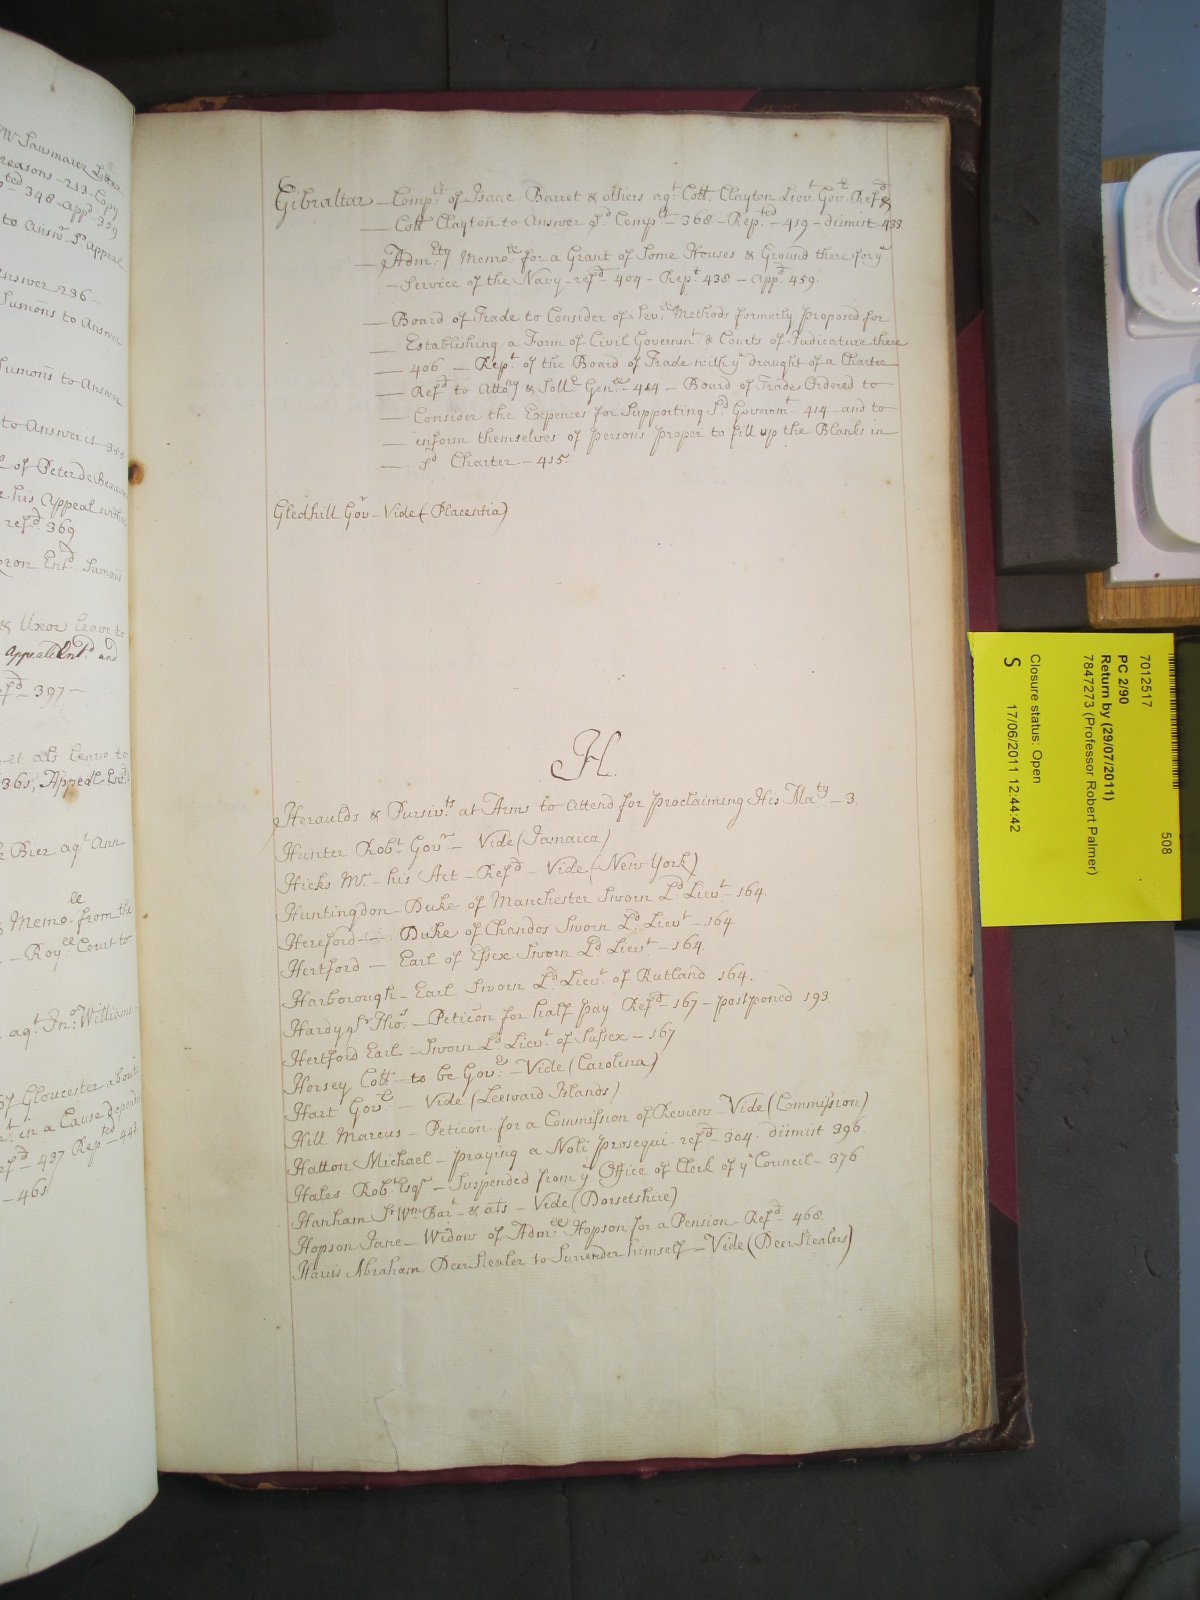 Mr Sausmarez Letter
reasons - 213 - Copy
348 - appd 359
to Answr sd appeal
Answer - 236 -
Sumons to Answer
Sumons to Answer
to Answer it
of Peter de Beauvoir
his Appeal within
refd 369
Entd Sumons
& Uxor leave to
Appeal Entd and
refd - 397 -
et als leave to
365, Appeal Entd
Bier agt Ann
Memoll from the
- Royll Court to
agt Jno Williams -
of Gloucester about
in a Cause depending
refd - 437 Repted - 443
- 461
Gibraltar - Complt of Isaac Barret & others agt Coll. Clayton Lieut Govr - Refd &
- Coll Clayton to Answer sd Complt - 368 - Repted - 419 - dismist 433
- Admlty Memoll for a Grant of Some Houses & Ground there for ye
- Service of the Navy - refd 404 - Rept 438 - appd 459.
- Board of Trade to Consider of Severall Methods formerly proposed for
- Establishing a Form of Civil Governmt & Courts of Judicature there
- 406 - Rept of the Board of Trade with ye draught of a Charter
- Refd to Attory & Sollr Genll - 414 - Board of Trade Ordered to
- Consider the Expences for Supporting sd Governmt 414 - and to
- inform themselves of persons proper to fill up the Blanks in
- sd Charter - 415
Gledhill Govr - Vide (Placentia)
H.
Heraulds & Pursivts at Arms to attend for proclaiming His Maty - 3.
Hunter Robt Govr - Vide (Jamaica)
Hicks Mr - his Act - Refd - Vide (New York)
Huntingdon - Duke of Manchester Sworn Ld Lieut - 164.
Hereford - Duke of Chandos Sworn Ld Lieut - 164
Hertford - Earl of Essex Sworn Ld Lieut - 164.
Harborough - Earl Sworn Ld Lieut of Rutland 164.
Hardy Sr Thos - Peticōn for half pay Refd - 167 - postponed 193
Hertford Earl - Sworn Ld Lieut of Sussex - 167
Horsey Coll - to be Govr - Vide (Carolina)
Hart Govr - Vide (Leeward Islands)
Hill Marcus - Peticōn for a Commission of Review - Vide (Commission)
Hatton Michael - praying a Noli prosequi - refd - 304. dismist 396.
Hales Robt Esqr - Suspended from ye Office of Clerk of ye Council - 376
Hanham Sr Wm Bart - & als - Vide (Dorsetshire)
Hopson Jane - Widow of Admll Hopson for a Pension - Refd - 468
Harris Abraham Deer Stealer to Surrender himself - Vide (Deer Stealers)
7012517
508
PC 2/90
Return by (29/07/2011)
7847273 (Professor Robert Palmer)
Closure status: Open
S 17/06/2011 12:44:42